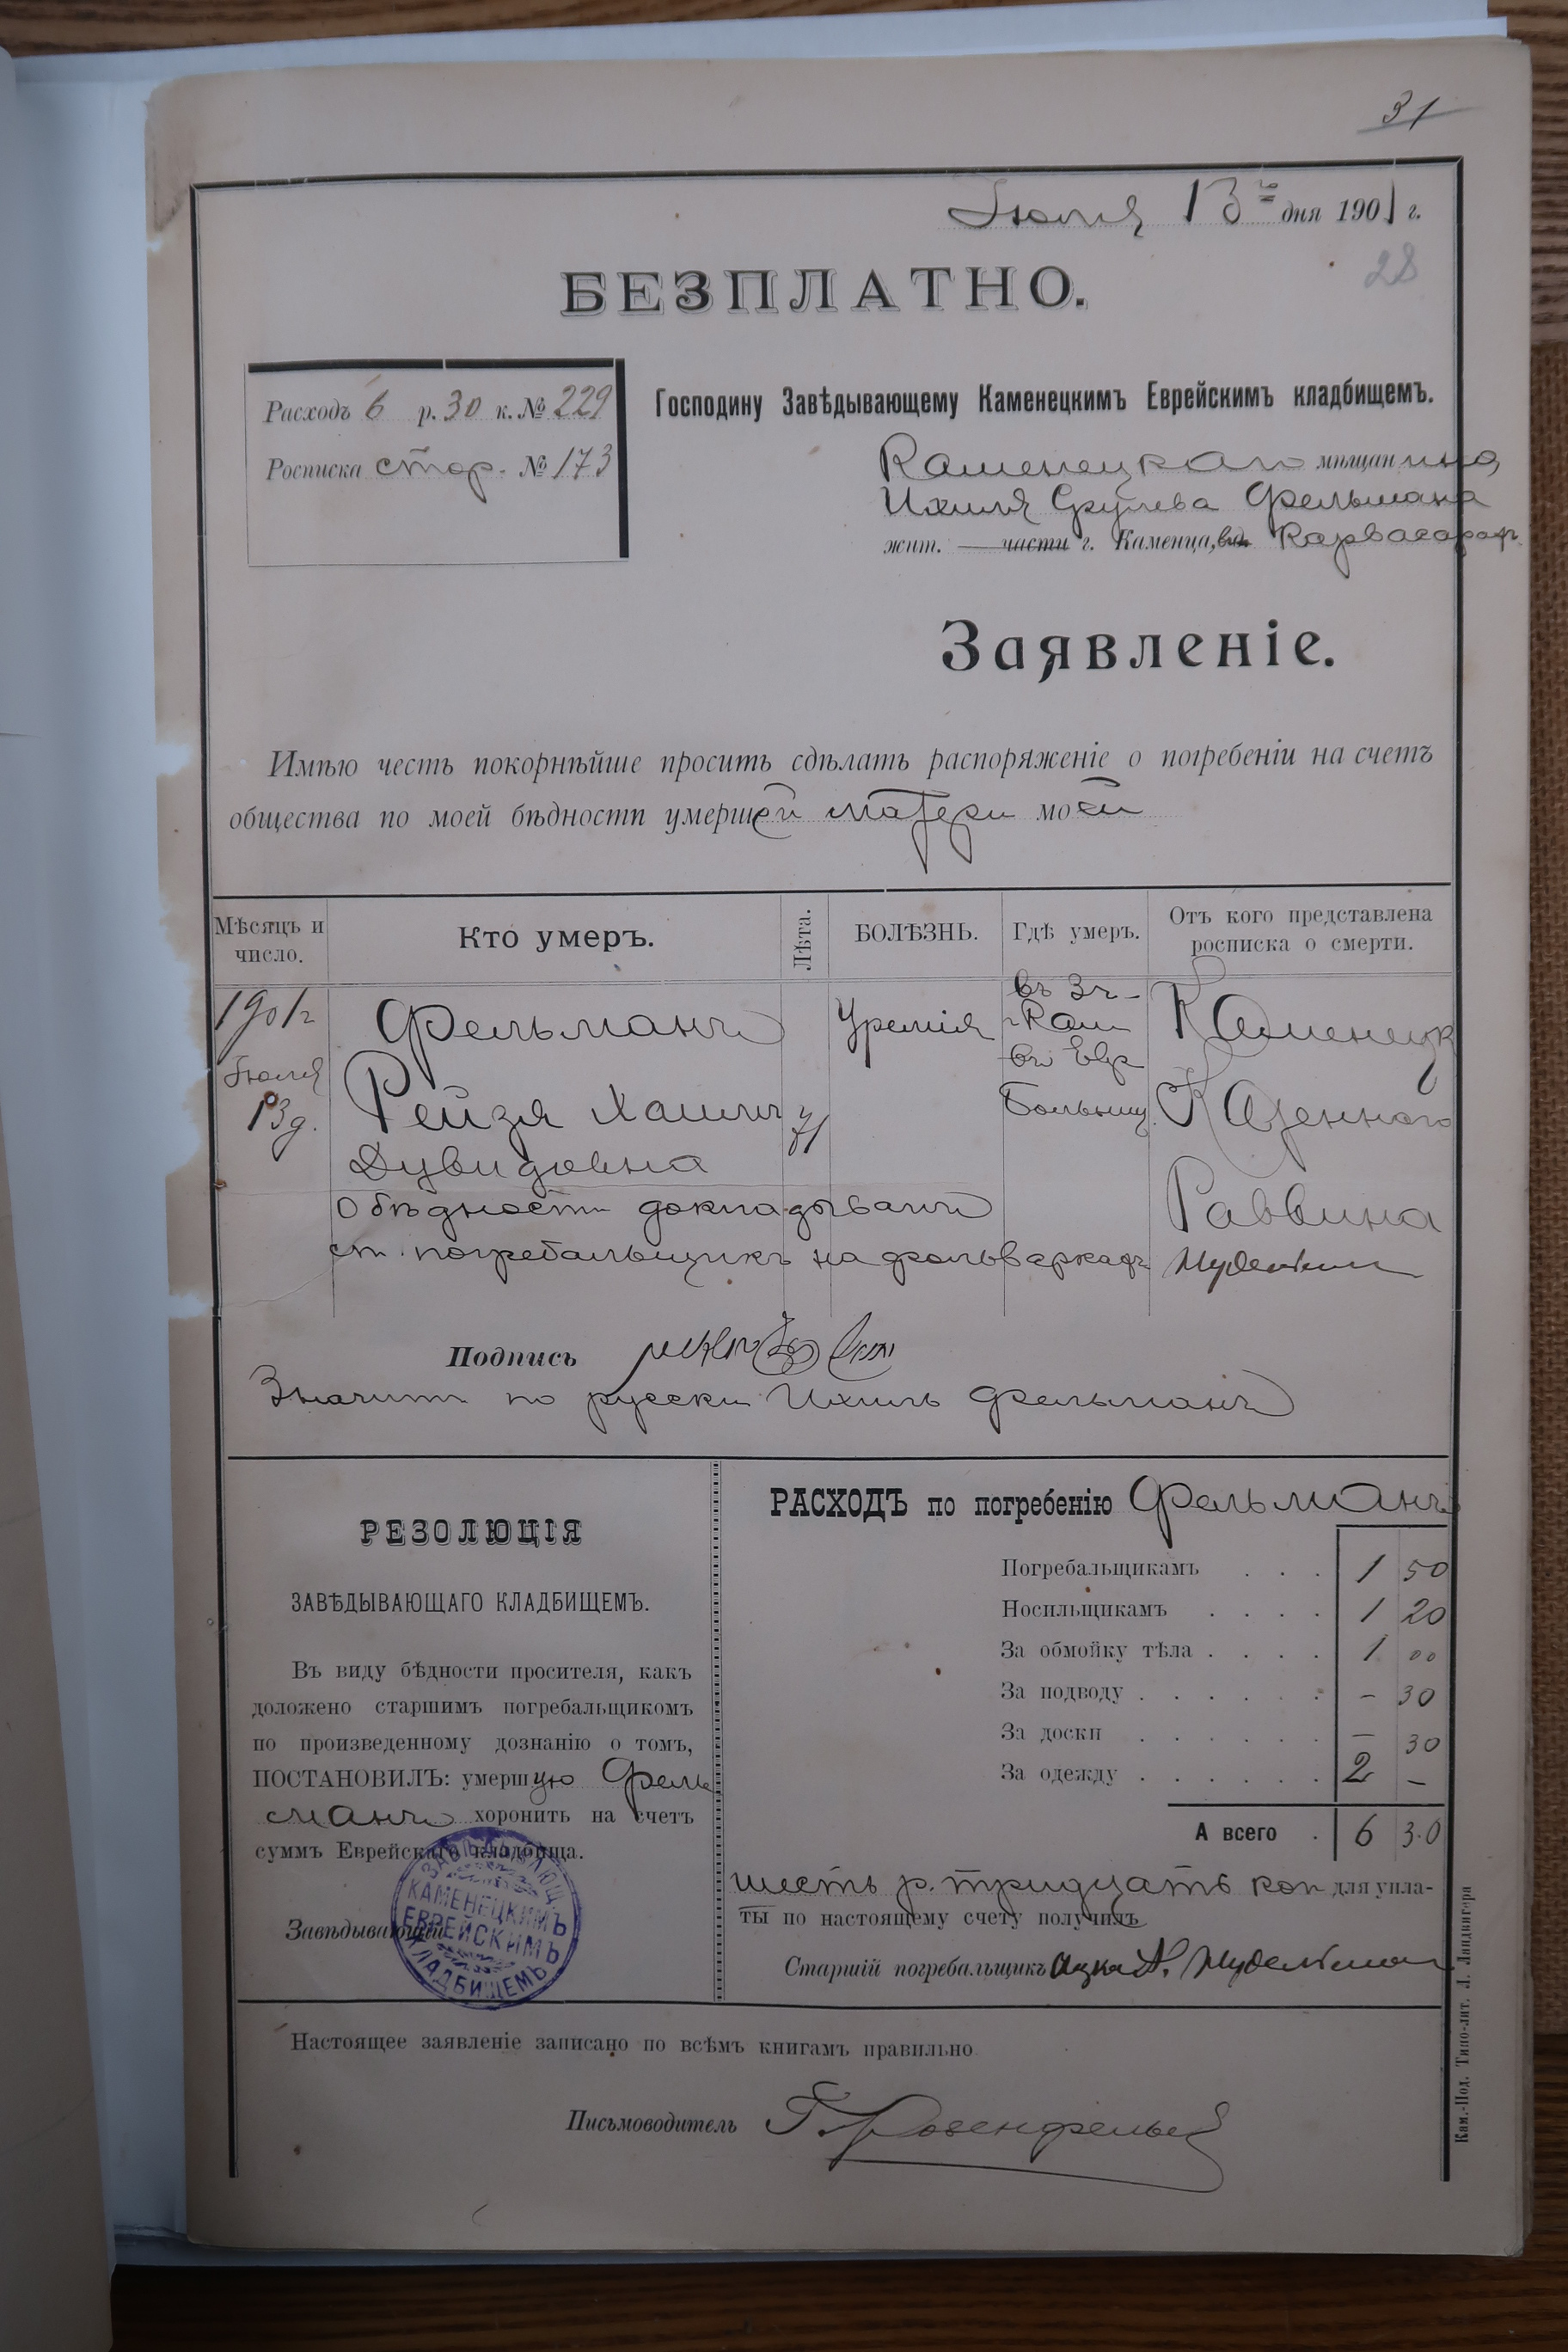 31
Іюля 13го дня 1901 г.
28
БЕЗПЛАТНО.
Расходъ 6 р. 30 к. № 229
Росписка стор. № 173
Господину Завѣдывающему Каменецкимъ Еврейскимъ кладбищемъ.
Каменецкаго мѣщанина,
Ихиля Сруллева Фельмана
жит. части г. Каменца, Карвасарах
Заявленіе.
Имѣю честь покорнѣйше просить сдѣлать распоряженіе о погребеніи на счетъ
общества по моей бѣдности умершей матери моей
Мѣсяцъ и число.
Кто умеръ.
Лѣта.
БОЛѢЗНЬ.
Гдѣ умеръ.
Отъ кого представлена росписка о смерти.
1901 г. Іюля 13 д.
Фельманъ
Рейзя
Дувидовна
71
Уремія
въ Евр Больниц.
Каменецк
Казеннаго
Раввина
о бѣдности докладывалъ
ст. погребальщикъ на фольваркахъ
Подпись
Значитъ по русски Ихиль Фельманъ
РЕЗОЛЮЦІЯ
ЗАВѢДЫВАЮЩАГО КЛАДБИЩЕМЪ.
Въ виду бѣдности просителя, какъ
доложено старшимъ погребальщикомъ
по произведенному дознанію о томъ,
ПОСТАНОВИЛЪ: умершую Фель
манъ хоронить на счетъ
суммъ Еврейскаго кладбища.
Завѣдывающій
ЗАВѢДЫВАЮЩ.
КАМЕНЕЦКИМЪ
ЕВРЕЙСКИМЪ
КЛАДБИЩЕМЪ
РАСХОДЪ по погребенію Фельманъ
Погребальщикамъ . . . 1 50
Носильщикамъ . . . . 1 20
За обмойку тѣла . . . . 1 00
За подводу . . . . . . – 30
За доски . . . . . . — 30
За одежду . . . . . . 2 –
А всего . 6 30
шесть р. тридцать коп для упла-
ты по настоящему счету получилъ
Старшій погребальщикъ
Настоящее заявленіе записано по всѣмъ книгамъ правильно.
Письмоводитель Г. Розенфельд
Кам.-Под. Типо-лит. Л. Ландвигера